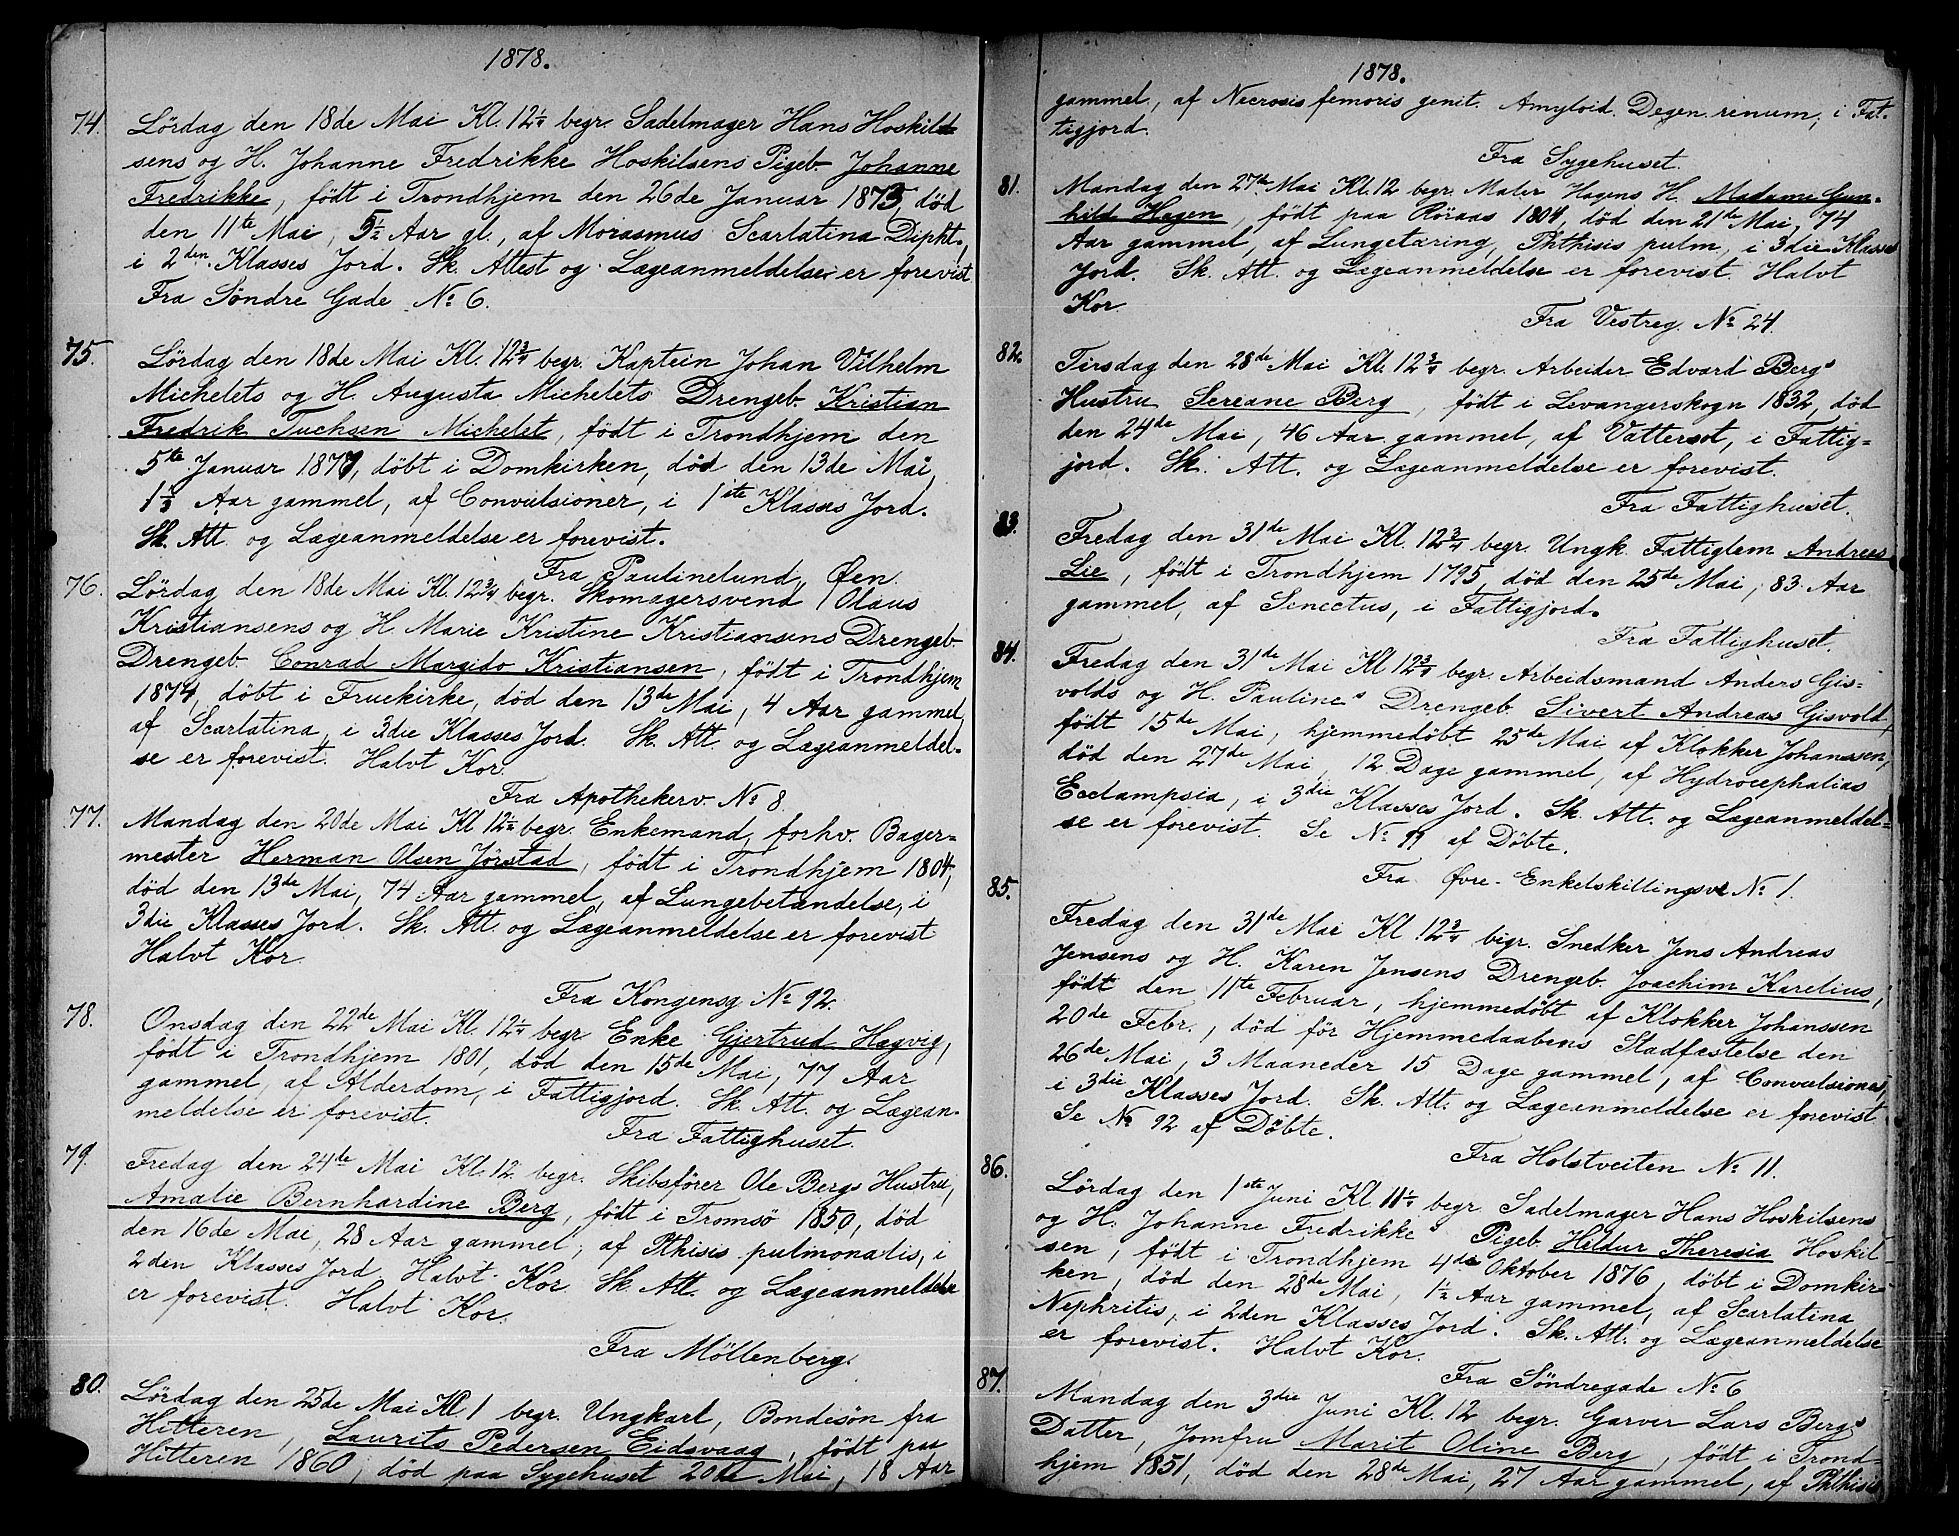 1878.
74. Lördag den 18de Mai Kl. 12¼ begr. Sadelmager Hans Hoskild-
sens og H. Johanne Fredrikke Hoskilsens Pigeb. Johanne
Fredrikke, födt i Trondhjem den 26de Januar 1873, död
den 11te Mai, 5½ Aar gl., af Morasmus Scarlatina Dipht.,
i 2den Klasses Jord. Sk. Attest og Lægeanmeldelse er forevist.
Fra Söndre Gade No 6.
75. Lördag den 18de Mai Kl. 12¾ begr. Kaptein Johan Vilhelm
Michelets og H. Augusta Michelets Drengeb. Kristian
Fredrik Tuchsen Michelet, födt i Trondhjem den
5te Januar 1877, döbt i Domkirken, död den 13de Mai,
1⅓ Aar gammel, af Convulsioner, i 1ste Klasses Jord.
Sk. Att. og Lægeanmeldelse er forevist.
Fra Paulinelund, Öen.
76. Lördag den 18de Mai Kl. 12¾ begr. Skomagersvend Olaus
Kristiansens og H. Marie Kristine Kristiansens Drengeb.
Drengeb. Conrad Margido Kristiansen, födt i Trondhjem
1874, döbt i Fruekirke, död den 13de Mai, 4 Aar gammel,
af Scarlatina, i 3die Klasses Jord. Sk. Att. og Lægeanmeldel-
se er forevist. Halvt Kor.
Fra Apothekerv. No 8.
77. Mandag den 20de Mai Kl 12½ begr. Enkemand, forhv. Bager-
mester Herman Olsen Jörstad, födt i Trondhjem 1804,
död den 13de Mai, 74 Aar gammel, af Lungebetændelse, i
3die Klasses Jord. Sk. Att. og Lægeanmeldelse er forevist
Halvt Kor.
Fra Kongensg No 92.
78. Onsdag den 22de Mai Kl. 12¼ begr Enke Gjertrud Hagvig,
födt i Trondhjem 1801, död den 15de Mai, 77 Aar
gammel, af Alderdom, i Fattigjord. Sk. Att. og Lægean-
meldelse er forevist.
Fra Fattighuset.
79. Fredag den 24de Mai Kl. 12 begr. Skibsförer Ole Bergs Hustru,
Amalie Bernhardine Berg, födt i Tromsö 1850, död
den 16de Mai, 28 Aar gammel, af Pthisis pulmonalis, i
2den Klasses Jord Halvt Kor Sk. Att. og Lægeanmeldelse
er forevist. Halvt Kor.
Fra Möllenberg.
80. Lördag den 25de Mai Kl 1 begr. Ungkarl, Bondesön fra
Hitteren, Laurits Pedersen Eidsvaag, födt paa
Hitteren 1860, död paa Sygehuset 20de Mai, 18 Aar
1878.
gammel, af Necrosis femoris genit. Amyloid. Degen. renum, i Fat-
tigjord.
Fra Sygehuset.
81. Mandag den 27de Mai Kl. 12 begr. Maler Hagens H. Madame Gun-
hild Hagen, födt paa Röraas 1804, död den 21de Mai, 74
Aar gammel, af Lungetæring, Phthisis pulm., i 3die Klasses
Jord. Sk. Att. og Lægeanmeldelse er forevist. Halvt
Kor.
Fra Vestreg. No 24.
82. Tirsdag den 28de Mai Kl. 12¾ begr. Arbeider Edvard Bergs
Hustru Sereane Berg, födt i Levangerskogn 1832, död
den 24de Mai, 46 Aar gammel, af Vattersot, i Fattig-
jord. Sk. Att. og Lægeanmeldelse er forevist.
Fra Fattighuset.
83. Fredag den 31de Mai Kl. 12¾ begr. Ungk. Fattiglem Andreas
Lie, födt i Trondhjem 1795, död den 25de Mai, 83 Aar
gammel, af Senectus, i Fattigjord.
Fra Fattighuset.
84. Fredag den 31de Mai Kl 12¾ begr. Arbeidsmand Anders Gis-
volds og H. Pauline's Drengeb. Sivert Andreas Gisvold,
födt 15de Mai, hjemmedöbt 25de Mai af Klokker Johanssen,
död den 27de Mai, 12 Dage gammel, af Hydrocephalias
Ecclampsia, i 3die Klasses Jord. Sk. Att. og Lægeanmeldel-
se er forevist. Se No 91 af Döbte.
Fra Övre Enkelskillingsv. No 1.
85. Fredag den 31de Mai Kl 12¾ begr. Snedker Jens Andreas
Jensens og H. Karen Jensens Drengeb. Joachim Karelius,
födt den 11te Februar, hjemmedöbt af Klokker Johanssen
20de Febr., död för Hjemmedaabens Stadfæstelse den
26de Mai, 3 Maaneder 15 Dage gammel, af Convulsiones,
i 3die Klasses Jord. Sk. Att. og Lægeanmeldelse er forevist
Se No 92 af Döbte.
Fra Holstveiten No 11.
86. Lördag den 1ste Juni Kl 11½ begr. Sadelmager Hans Hoskilsens
og H. Johanne Fredrikke's Pigeb. Hildur Theresia Hoskil-
sen, födt i Trondhjem 4de Oktober 1876, döbt i Domkir-
ken, död den 28de Mai, 1½ Aar gammel, af Scarlatina
Nephritis, i 2den Klasses Jord. Sk. Att. og Lægeanmeldelse
er forevist. Halvt Kor.
Fra Söndregade No 6
87. Mandag den 3die Juni Kl. 12 begr. Garver Lars Bergs
Datter, Jomfru Marit Oline Berg, födt i Trond-
hjem 1851, död den 28de Mai, 27 Aar gammel, af Phthisis